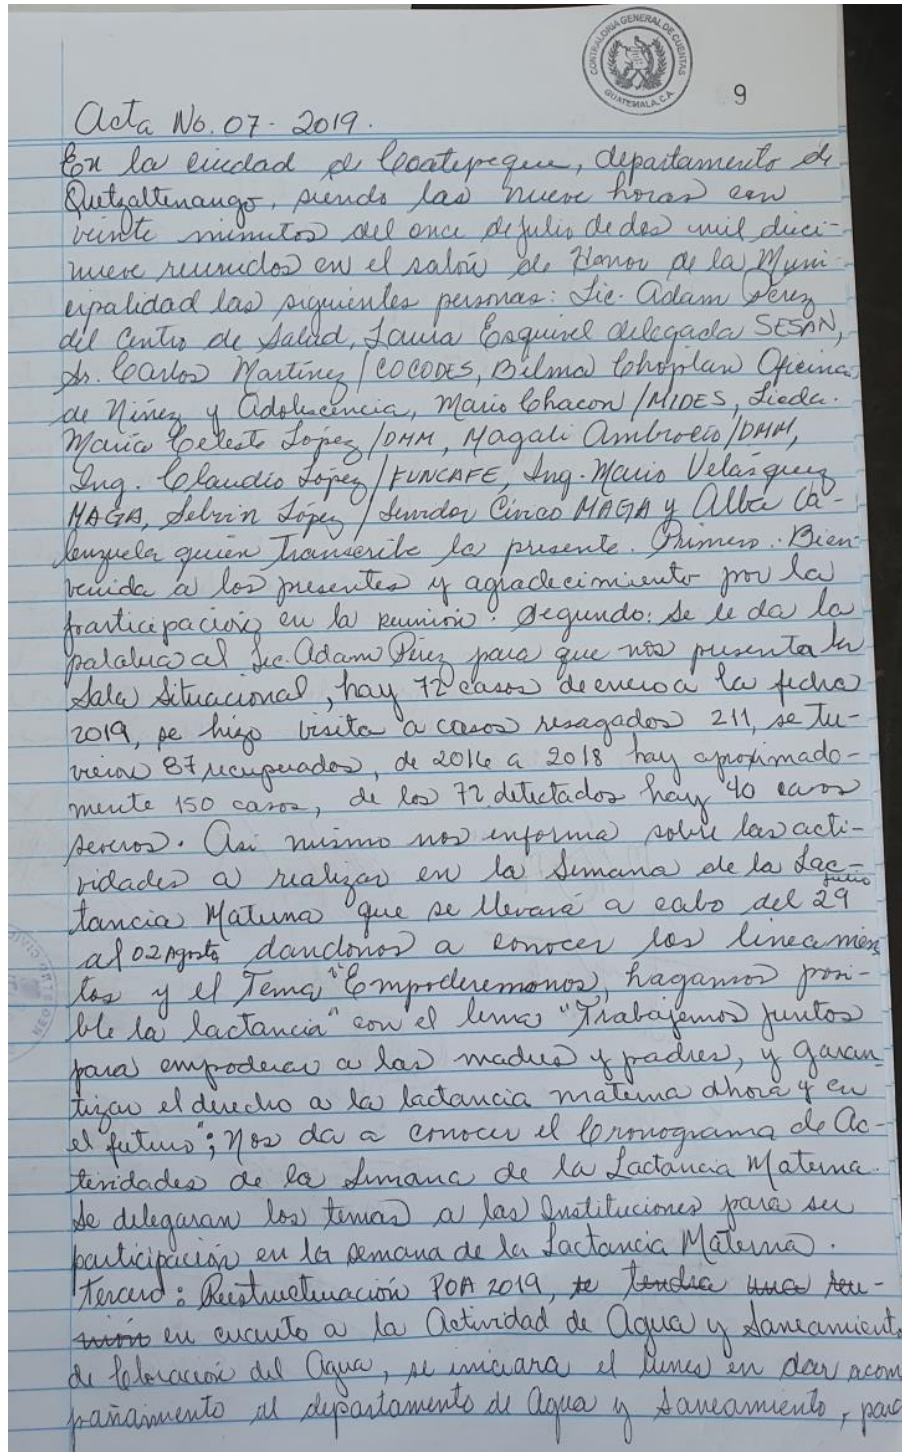 CONTRALORIA GENERAL DE CUENTAS
GUATEMALA, C.A.
9
Acta No. 07-2019.
En la ciudad de Coatepeque, departamento de
Quetzaltenango, siendo las nueve horas con
veinte minutos del once de julio de dos mil dieci-
nueve reunidos en el salón de Honor de la Muni-
cipalidad las siguientes personas: Lic. Adam Pérez
del Centro de Salud, Laura Esquivel delegada SESAN,
Sr. Carlos Martínez / COCODES, Bilma Oficina
de Niñez y Adolescencia, Mario Chacon / MIDES, Licda.
María Celeste López / DMM, Magali Ambrocio / DMM,
Ing. Claudio López / FUNCAFE, Ing. Mario Velásquez
MAGA, Selvin López / Servidor Cívico MAGA y Alba Va-
lenzuela quien Transcribe la presente. Primero: Bien-
venida a los presentes y agradecimiento por la
participación en la reunión. Segundo: Se le da la
palabra al Lic. Adam Pérez para que nos presenta la
Sala Situacional, hay 72 casos de enero a la fecha
2019, se hizo visita a casos resagados 211, se tu-
vieron 87 recuperados, de 2016 a 2018 hay aproximada-
mente 150 casos, de los 72 detectados hay 40 casos
severos. Asi mismo nos informa sobre las acti-
vidades a realizar en la Semana de la Lac-
tancia Materna que se llevará a cabo del 29 julio
al 02 Agosto dandonos a conocer los lineamien
tos y el Tema "Empoderemonos, hagamos posi-
ble la lactancia" con el lema "Trabajemos juntos
para empoderar a las madres y padres, y garan-
tizar el derecho a la lactancia materna ahora y en
el futuro"; Nos da a conocer el Cronograma de Ac-
tividades de la Semana de la Lactancia Materna.
Se delegaran los temas a las Instituciones para su
participación en la semana de la Lactancia Materna.
Tercero: Restructuración POA 2019, se tendra una reu-
nión en cuanto a la Actividad de Agua y Saneamiento
de Cloración del Agua, se iniciara el lunes en dar acom
pañamiento al departamento de Agua y Saneamiento, para